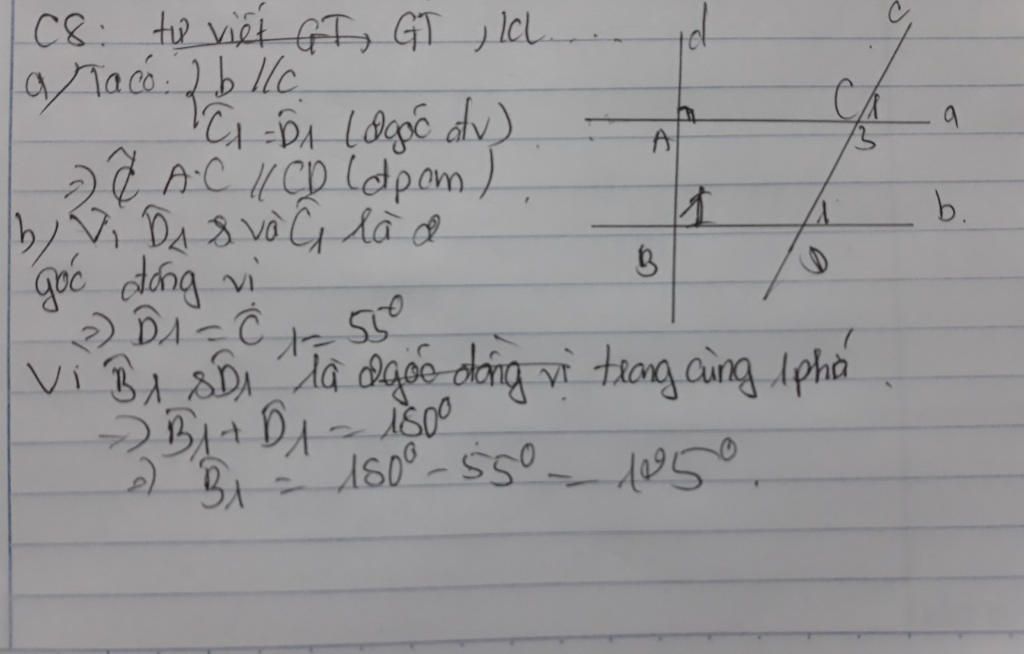 C8: tự viết GT, GT, KL....
a/ Ta có: { b // c
Ĉ1 = D̂1 (2 góc đtv)
=> A.C // CD (đpcm)
b/ Vì D̂1 & và Ĉ1 là 2
góc đồng vị
=> D̂1 = Ĉ1 = 55°
Vì B̂1 & D̂1 là 2 góc đồng vị trong cùng 1 phá
=> B̂1 + D̂1 = 180°
=> B̂1 = 180° - 55° = 125°.
d
c
C 1
a
A
3
1
1
b.
B
D